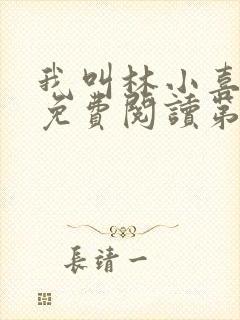 我叫林小喜
免費閱讀第
長靖一